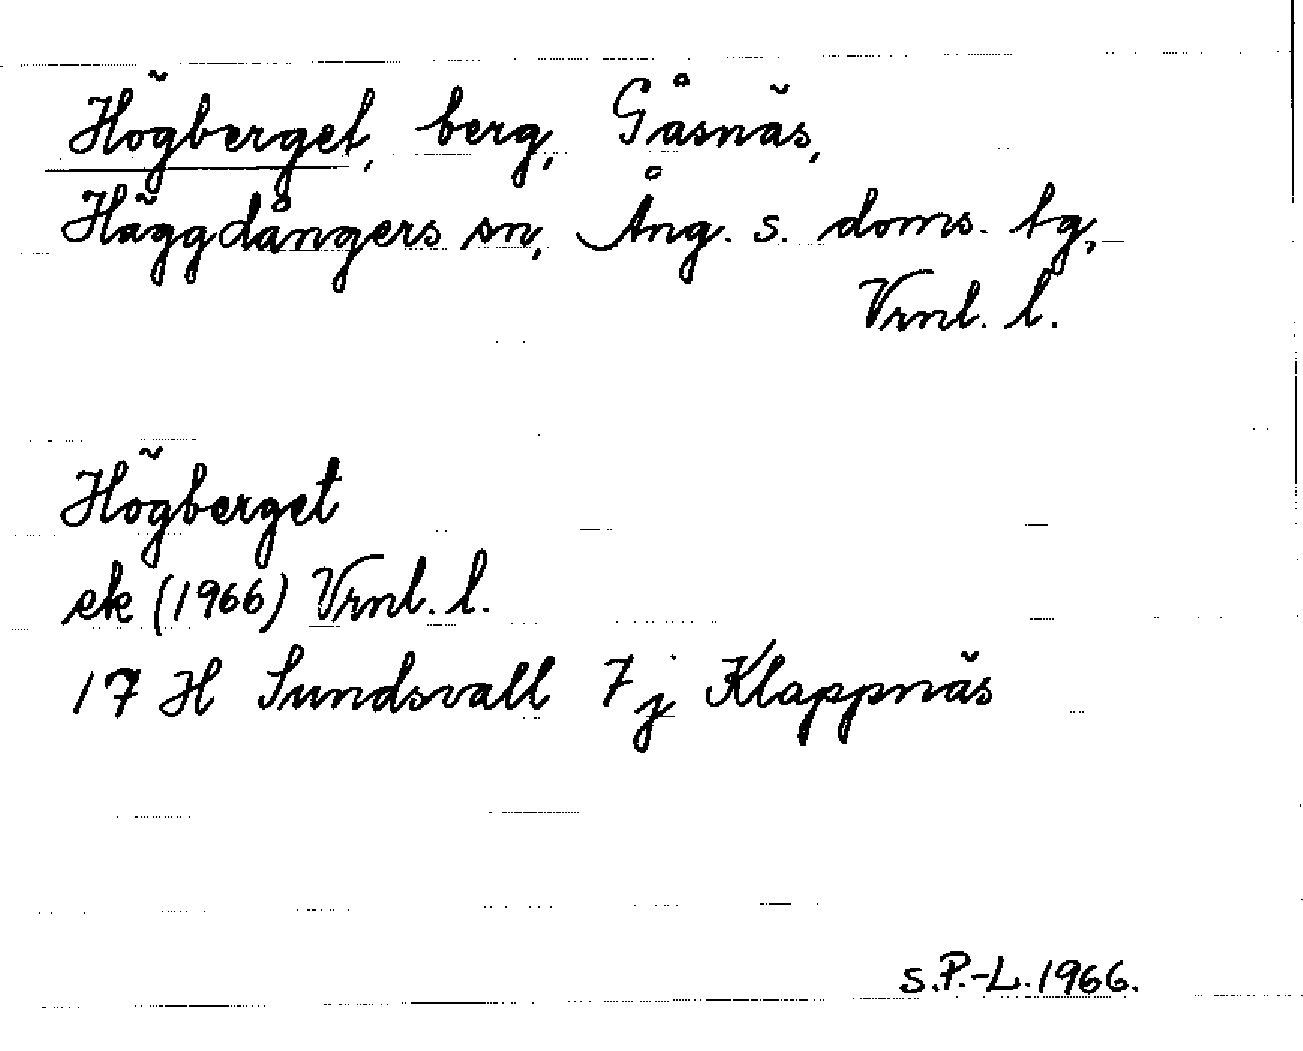 Högberget, berg, Gåsnäs,
Häggdångers sn, Ång. s. doms. tg,
Vrnl. l.
Högberget
ek (1966) Vrnl. l.
17 H Sundsvall 7 j Klappnäs
S.P.-L. 1966.